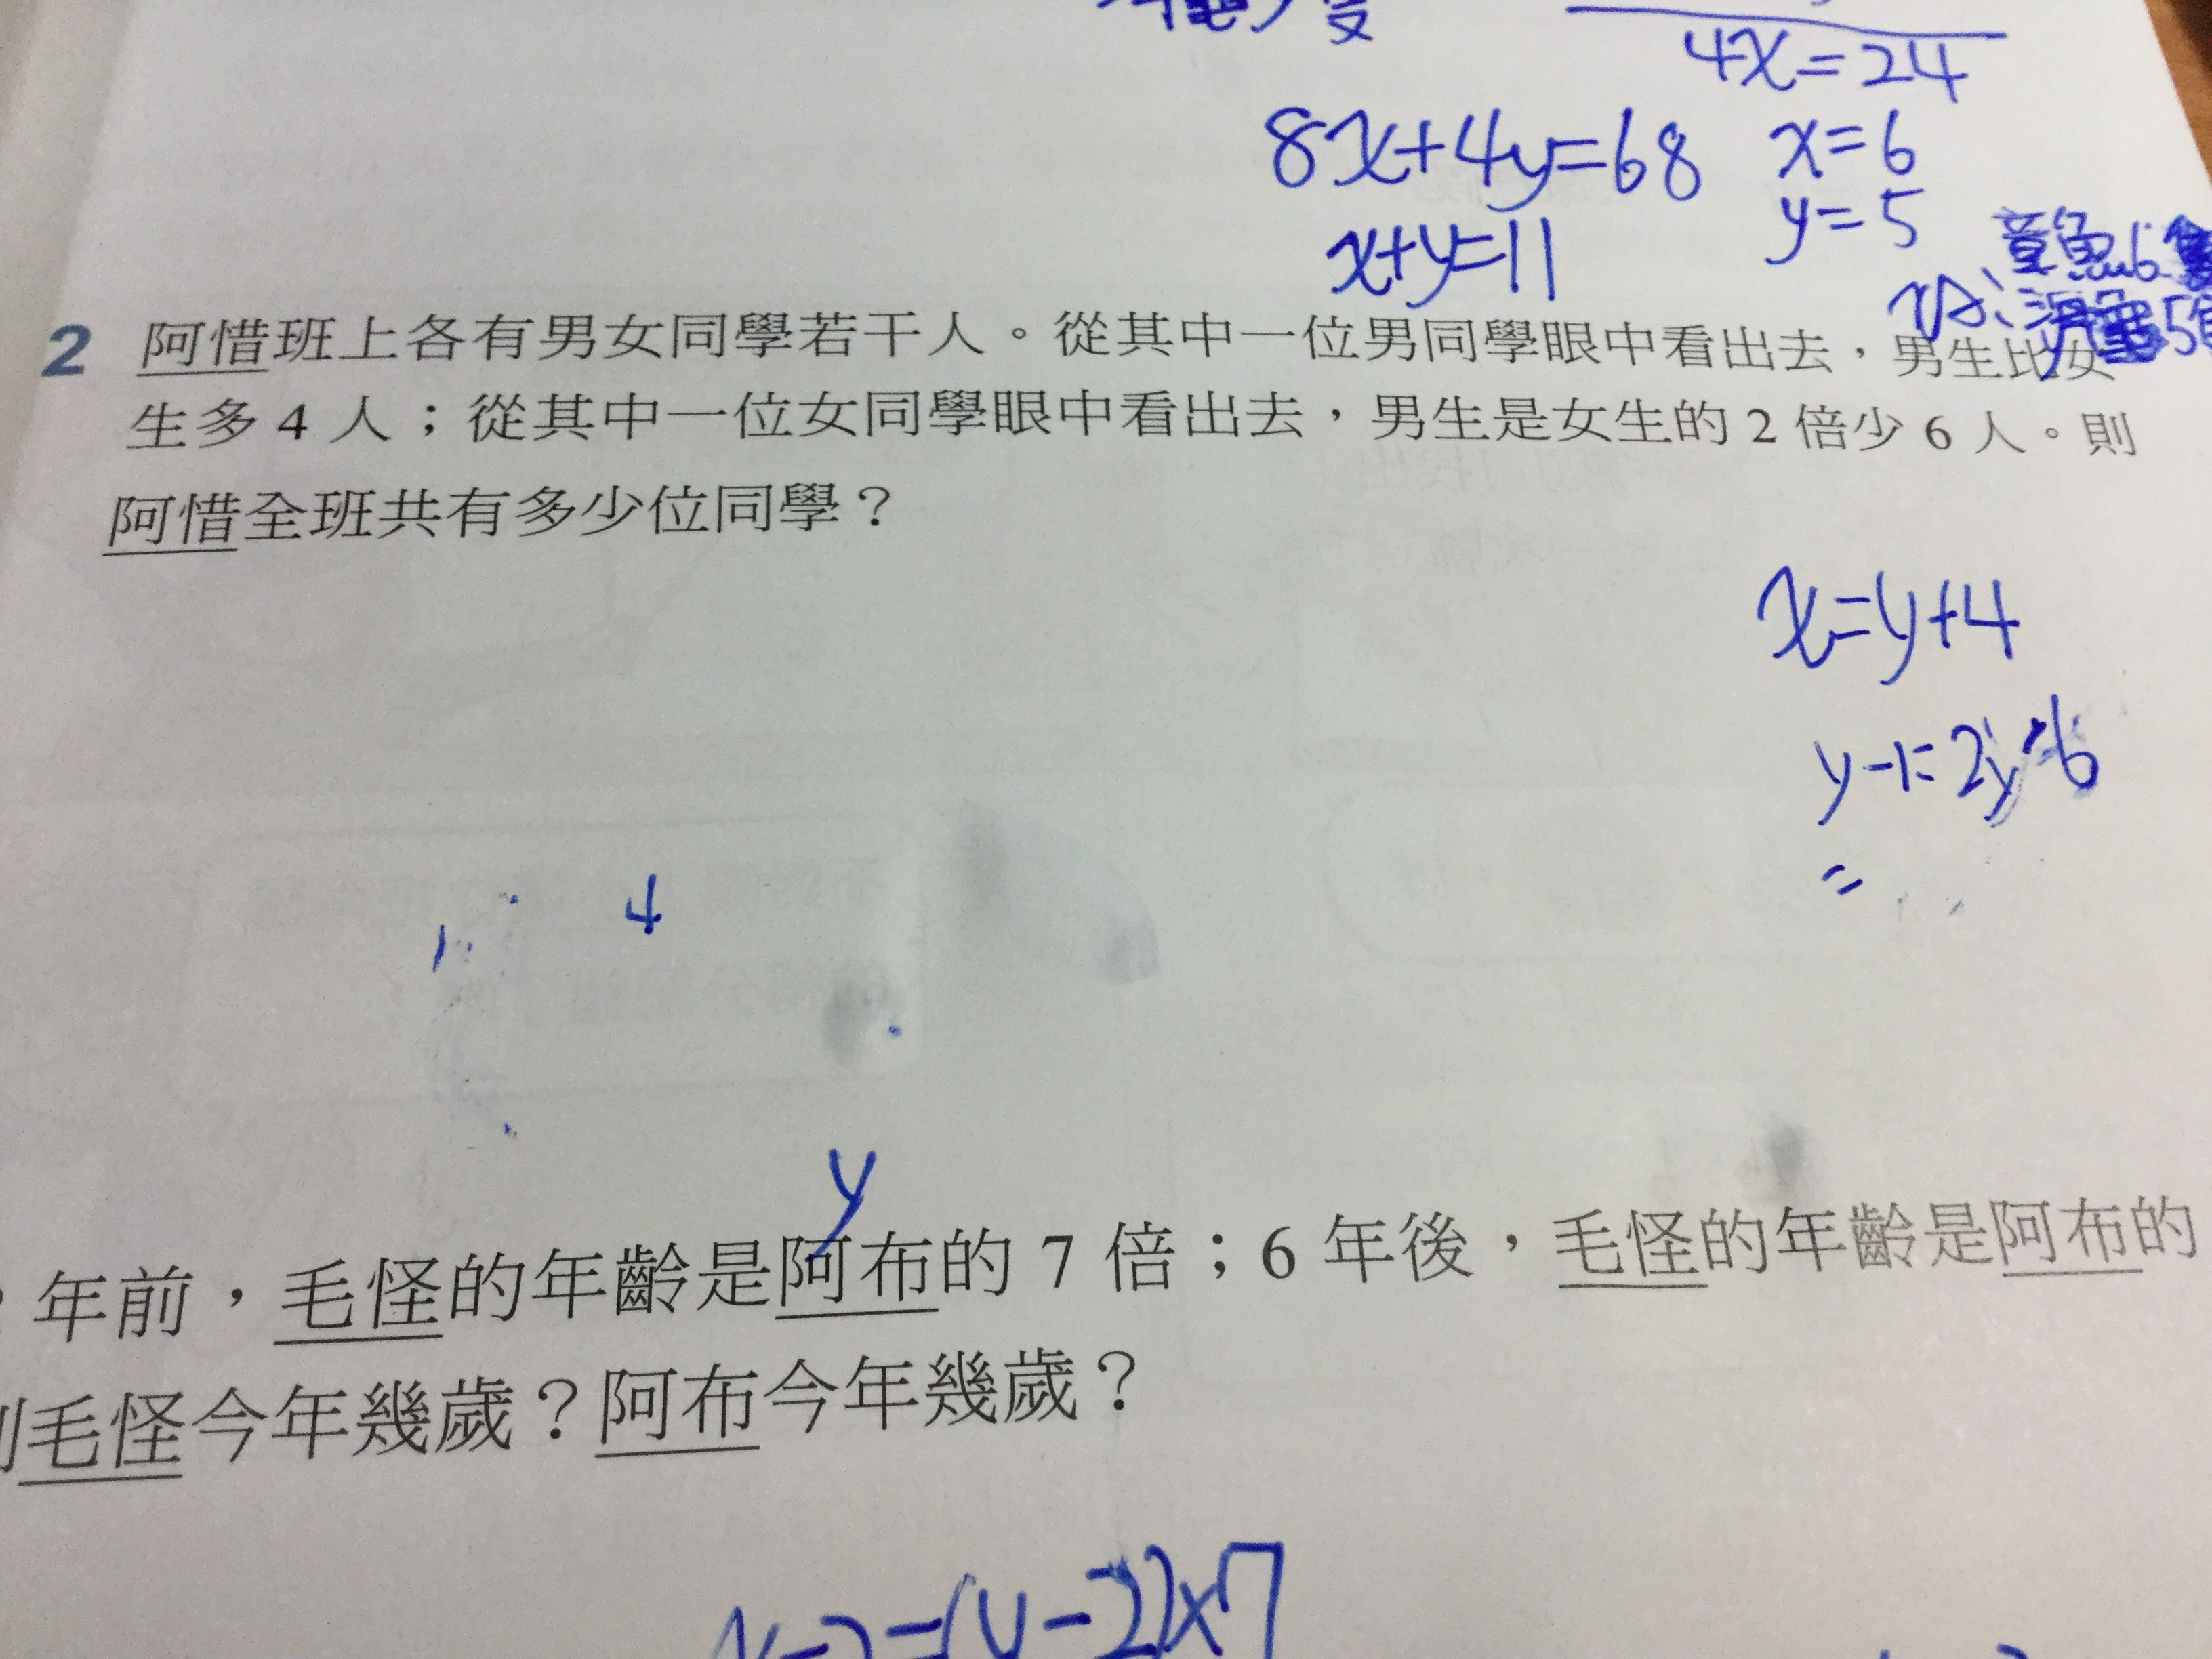 4x=24
8x+4y=68
x=6
x+y=11
y=5
章魚6
2 阿惜班上各有男女同學若干人。從其中一位男同學眼中看出去，男生比女
生多 4 人；從其中一位女同學眼中看出去，男生是女生的 2 倍少 6 人。則
阿惜全班共有多少位同學？
x=y+4
y-1=2y-6
=
4
y
年前，毛怪的年齡是阿布的 7 倍；6 年後，毛怪的年齡是阿布的
毛怪今年幾歲？阿布今年幾歲？
x-2=(y-2)x7